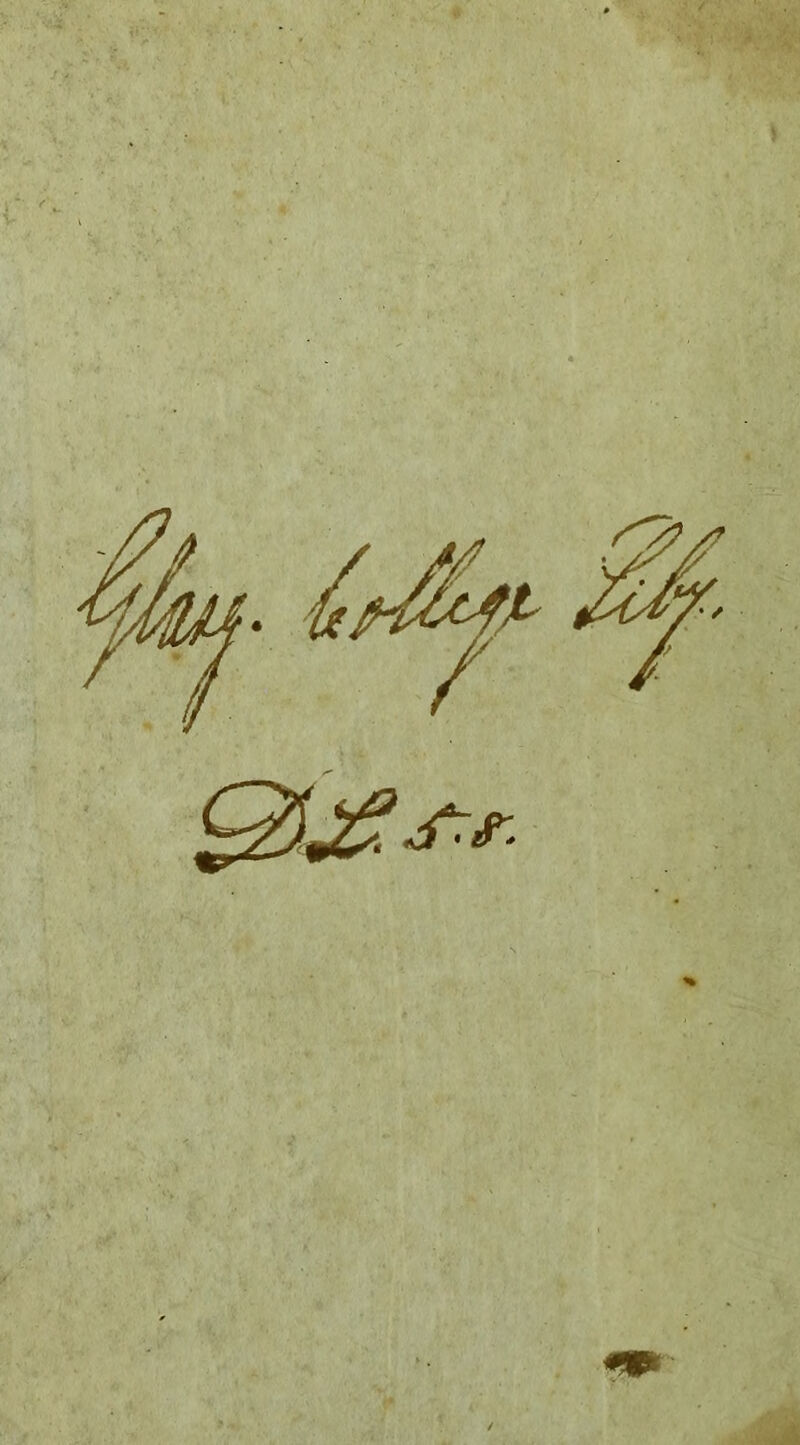 Glasg. College Liby.
DL. 5.8.